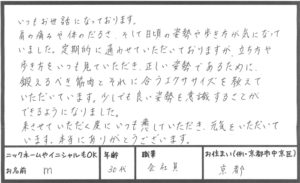 いつもお世話になっております。
肩の痛みや体のだるさ、そして日頃の姿勢や歩き方が気になって
いました。定期的に通わせていただいておりますが、立ち方や
歩き方をいつも見ていただき、正しい姿勢であるために、
鍛えるべき筋肉とそれに合うエクササイズを教えて
いただいています。少しでも良い姿勢を意識することが
できるようになりました。
来させていただく度にいつも癒していただき、元気をいただいて
います。本当にありがとうございます。
ニックネームやイニシャルもOK 年齢 職業 お住まい(例:京都市中京区)
お名前 m 30代 会社員 京都